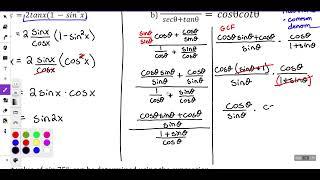 = 2tanx(1 - sin²x)
= 2 sinx/cosx (1-sin²x)
= 2 sinx/cosx (cos²x)
= 2sinx·cosx
= sin2x
b)
secθ+tanθ = cosθcotθ
sinθ/sinθ cosθ + cosθ/sinθ
1/cosθ + sinθ/cosθ
cosθsinθ/sinθ + cosθ/sinθ
1/cosθ + sinθ/cosθ
cosθsinθ+cosθ
sinθ
1+sinθ
cosθ
GCF
cosθsinθ+cosθ/sinθ · cosθ/1+sinθ
cosθ(sinθ+1)/sinθ · cosθ/(1+sinθ)
cosθ/sinθ · c
common
denom